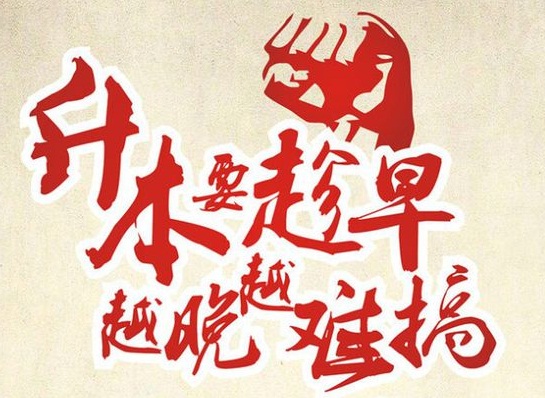 升本要趁早
越晚越难搞